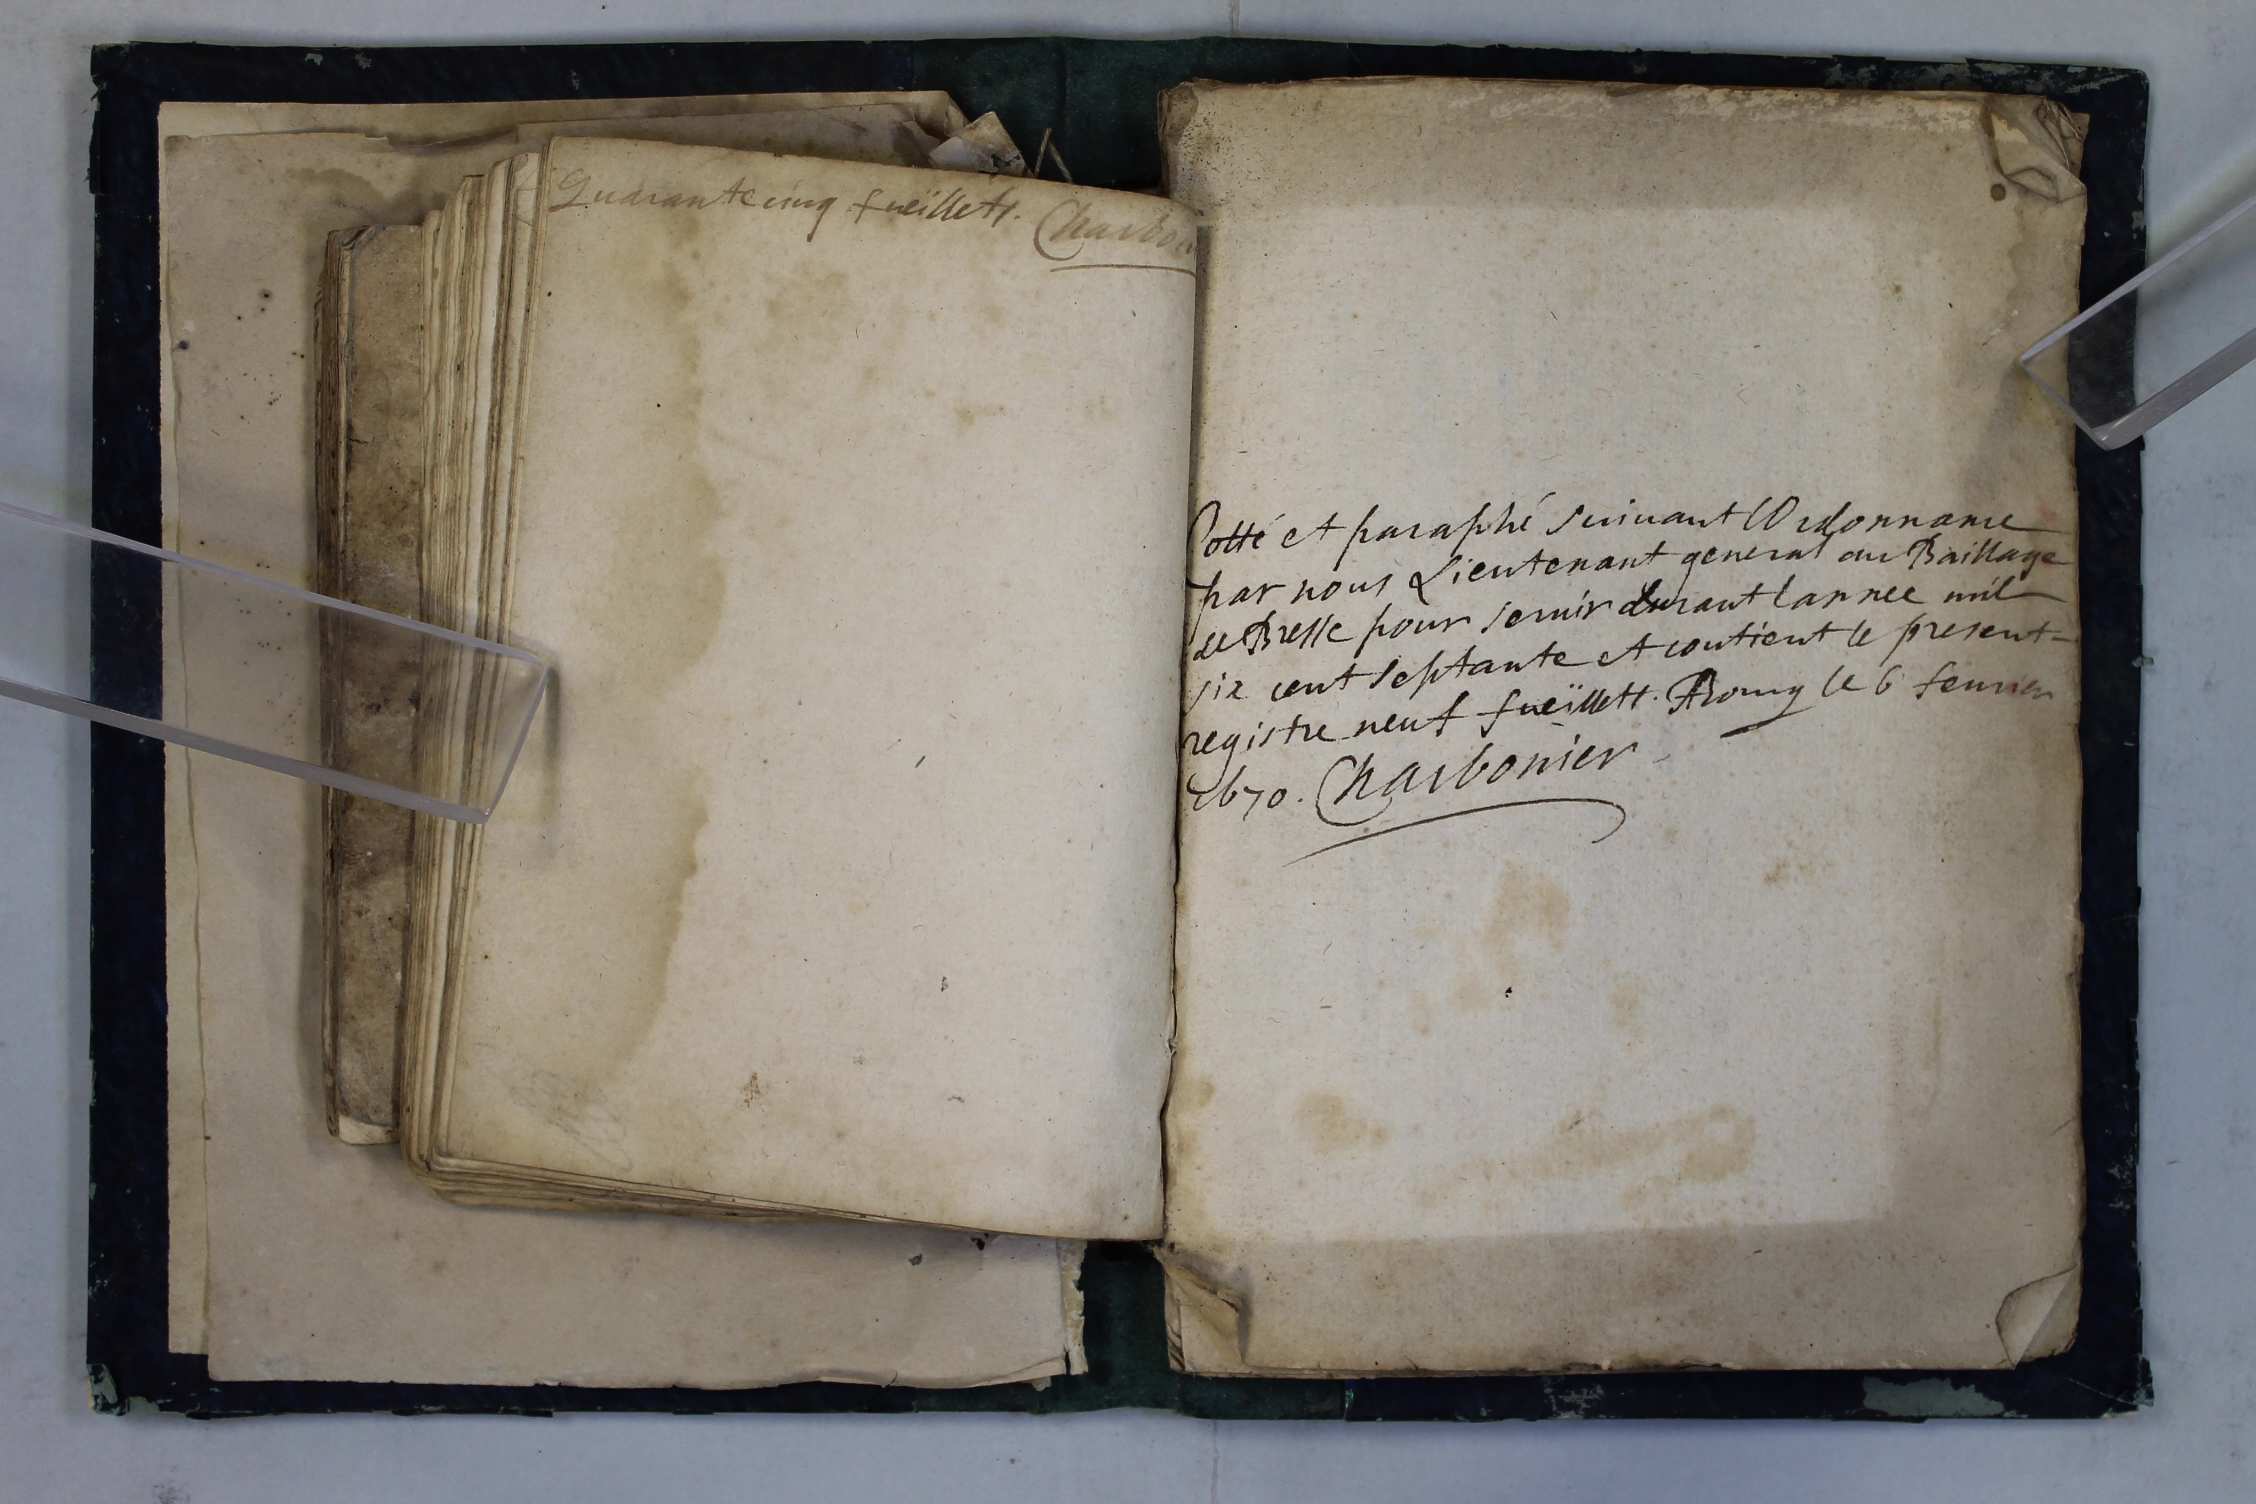 Quarante cinq fueillets. Charbon
Cotté et paraphé suiuant l'Ordonnance
par nous Lieutenant general au Baillage
de Bresse pour seruir durant lannee mil
six cent septante et contient le present
registre neuf fueillets. A Bourg le 6 feurier
1670. Charbonier